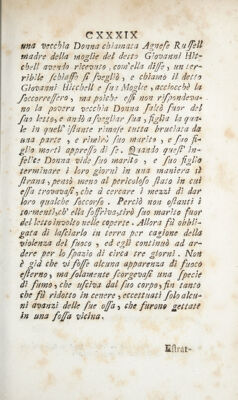 CXXXIX
una vecchia Donna chiamata Agnese Russell
madre della moglie del detto Giovanni Hit-
chell avendo ricevuto, com'ella disse, un ter-
ribile schiaffo si svegliò, e chiamò il detto
Giovanni Hitchell e sua Moglie, acciocchè la
soccorressero, ma poichè essi non rispondeva-
no la povera vecchia Donna saltò fuor del
suo letto, e andò a svegliar sua figlia la qua-
le in quell' istante rimase tutta bruciata da
una parte, e rimirò suo marito, e suo fi-
glio morti appresso di se. Quando quest' in-
felice Donna vide suo marito, e suo figlio
terminare i loro giorni in una maniera sì
strana, pensò meno al pericoloso stato in cui
essa trovavasi, che a cercare i mezzi di dar
loro qualche soccorso. Perciò non ostanti i
tormenti, ch' ella soffriva, tirò suo marito fuor
del letto involto nelle coperte. Allora fù obbli-
gata di lasciarlo in terra per cagione della
violenza del fuoco, ed egli continuò ad ar-
dere per lo spazio di circa tre giorni. Non
è già che vi fosse alcuna apparenza di fuoco
esterno, ma solamente scorgevasi una specie
di fumo, che usciva dal suo corpo, fin tanto
che fù ridotto in cenere, eccettuati solo alcu-
ni avanzi delle sue ossa, che furono gettate
in una fossa vicina.
Estrat-